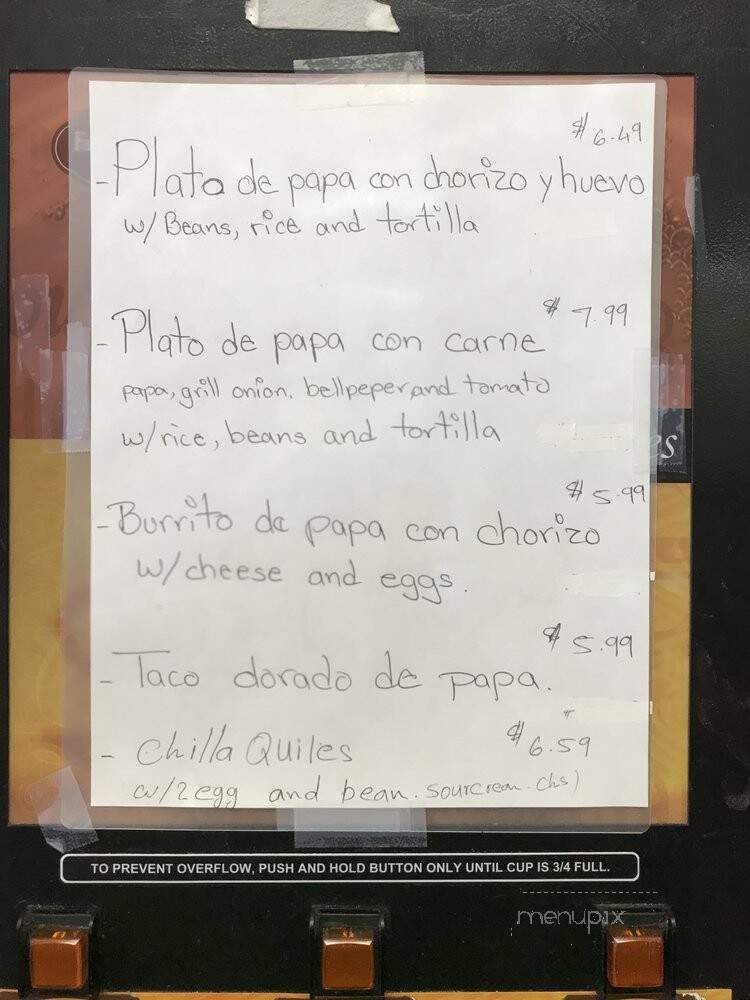 $ 6.49
- Plato de papa con chorizo y huevo
w/ Beans, rice and tortilla
$ 7.99
- Plato de papa con carne
papa, grill onion. bellpeper and tomato
w/rice, beans and tortilla
es
$ 5.99
- Burrito de papa con chorizo
w/cheese and eggs.
$ 5.99
- Taco dorado de papa.
$ 6.59
- Chilla Quiles
w/2 egg and bean. sourcream. chs)
TO PREVENT OVERFLOW, PUSH AND HOLD BUTTON ONLY UNTIL CUP IS 3/4 FULL.
menupix